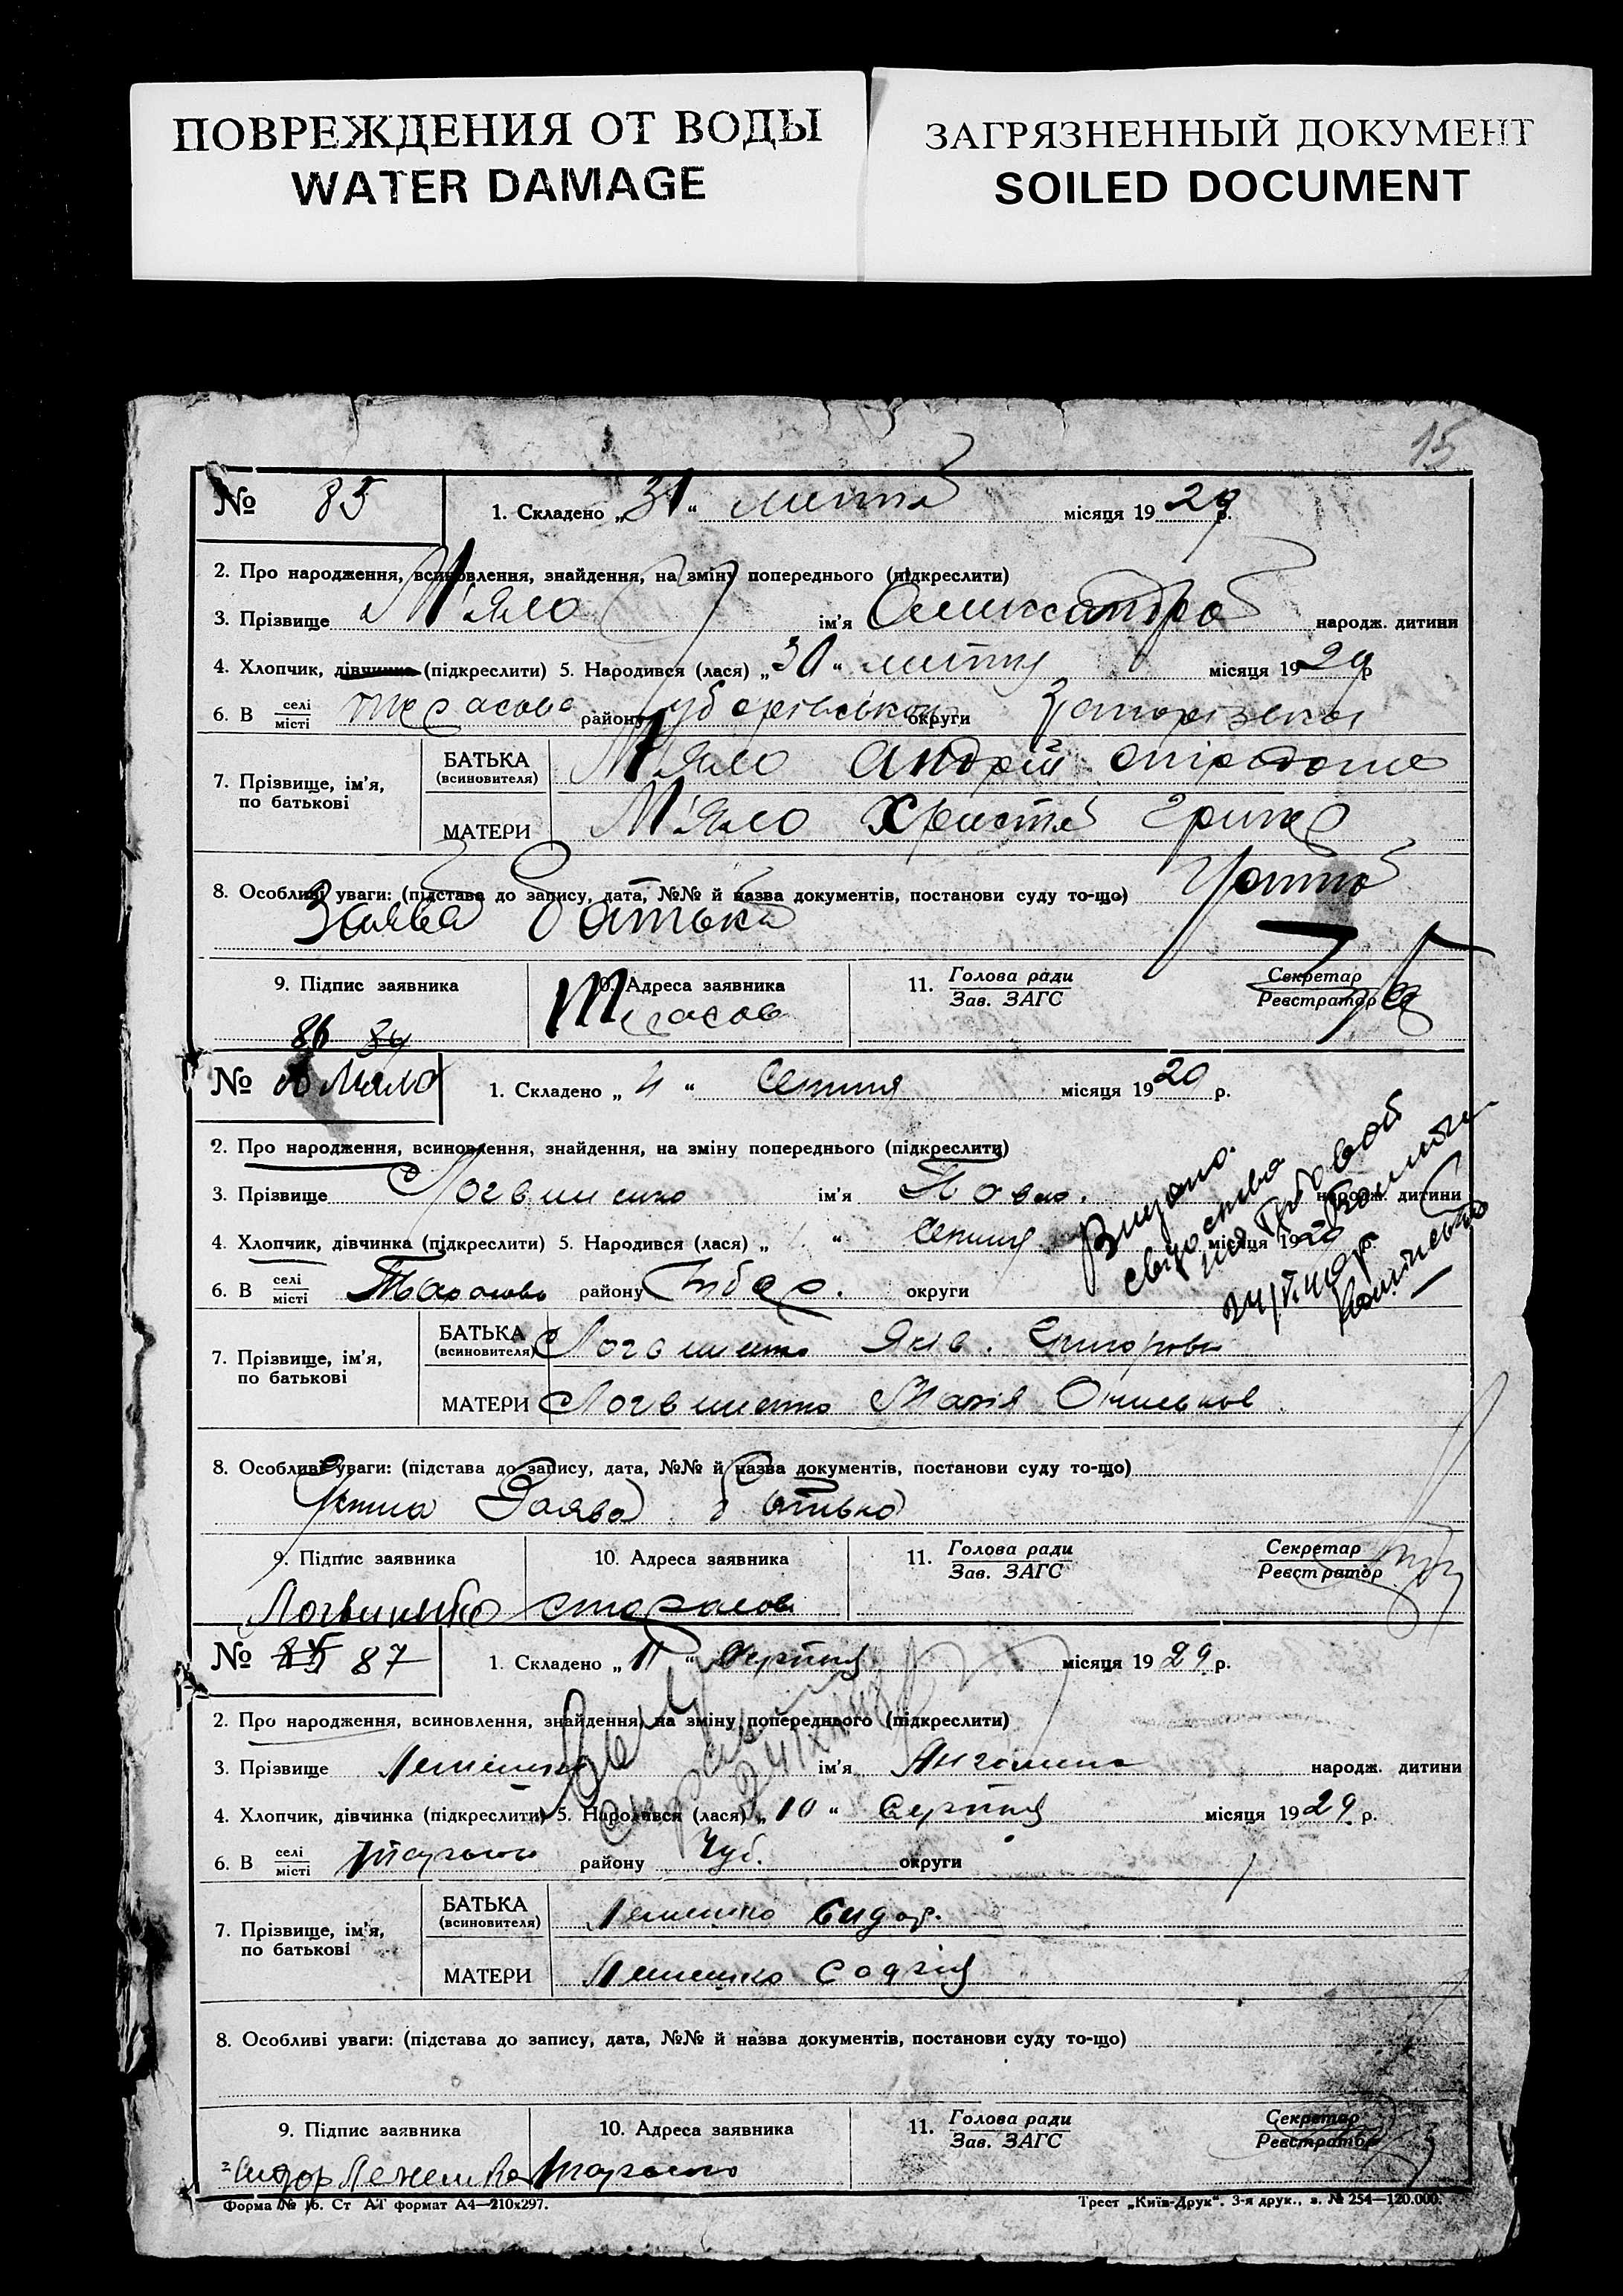 ПОВРЕЖДЕНИЯ ОТ ВОДЫ
WATER DAMAGE
ЗАГРЯЗНЕННЫЙ ДОКУМЕНТ
SOILED DOCUMENT
15
№ 85 1. Складено „31“ липня місяця 1929 р.
2. Про народження, всиновлення, знайдення, на зміну попереднього (підкреслити)
3. Прізвище М'яло ім'я Олександра народж. дитини
4. Хлопчик, дівчинка (підкреслити) 5. Народився (лася) „30“ липня місяця 1929 р
6. В селі/місті Тарасово району Чубарівського округи Запорізької
7. Прізвище, ім'я, по батькові
БАТЬКА (всиновителя) М'яло Андрій
МАТЕРИ М'яло Христя
8. Особливі уваги: (підстава до запису, дата, №№ й назва документів, постанови суду то-що)
Заява батька
9. Підпис заявника 10. Адреса заявника 11. Голова ради/Зав. ЗАГС Секретар/Реєстратор
86 84
№ А Мяло 1. Складено „4“ Серпня місяця 1929 р.
2. Про народження, всиновлення, знайдення, на зміну попереднього (підкреслити)
3. Прізвище Логвиненко ім'я народж. дитини
4. Хлопчик, дівчинка (підкреслити) 5. Народився (лася) „ “ Серпня місяця 1929 р.
6. В селі/місті Тарасово району Чубар. округи
7. Прізвище, ім'я, по батькові
БАТЬКА (всиновителя) Логвиненко Яків Григоров
МАТЕРИ Логвиненко Марія
8. Особливі уваги: (підстава до запису, дата, №№ й назва документів, постанови суду то-що)
Заява батька
9. Підпис заявника 10. Адреса заявника 11. Голова ради/Зав. ЗАГС Секретар/Реєстратор
Логвиненко с Тарасов
№ 85 87 1. Складено „11“ Серпня місяця 1929 р.
2. Про народження, всиновлення, знайдення, на зміну попереднього (підкреслити)
3. Прізвище Лемешко ім'я Ангелина народж. дитини
4. Хлопчик, дівчинка (підкреслити) 5. Народився (лася) „10“ Серпня місяця 1929 р.
6. В селі/місті Тарасово району Чуб. округи
7. Прізвище, ім'я, по батькові
БАТЬКА (всиновителя) Лемешко Сидор.
МАТЕРИ Лемешко
8. Особливі уваги: (підстава до запису, дата, №№ й назва документів, постанови суду то-що)
9. Підпис заявника 10. Адреса заявника 11. Голова ради/Зав. ЗАГС Секретар/Реєстратор
Сидор Лемешко Тарасово
Форма № 16. Ст АТ формат А4—210х297. Трест „Київ-Друк“. 3-я друк., з. № 254—120.000.